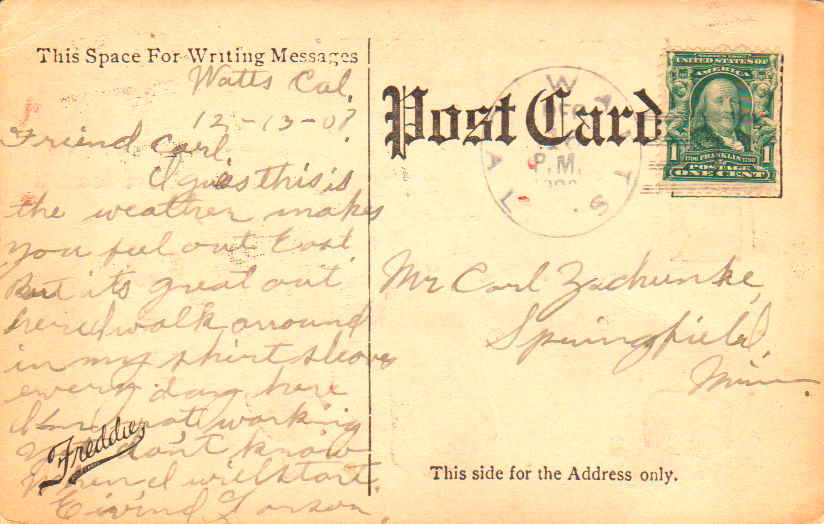 This Space For Writing Messages
Watts Cal.
12-13-07
Friend Carl.
I guess this is
the weather makes
you feel out East.
But its great out
here I walk arround
in my shirt sleeves
every day here
I am not working
don't know
when I will start.
Eivind Larson
Freddie
Post Card
WATTS
CAL.
P.M.
UNITED STATES OF
AMERICA
1706 FRANKLIN 1790
1 POSTAGE 1
ONE CENT
Mr Carl Zschunke
Springfield,
Minn.
This side for the Address only.